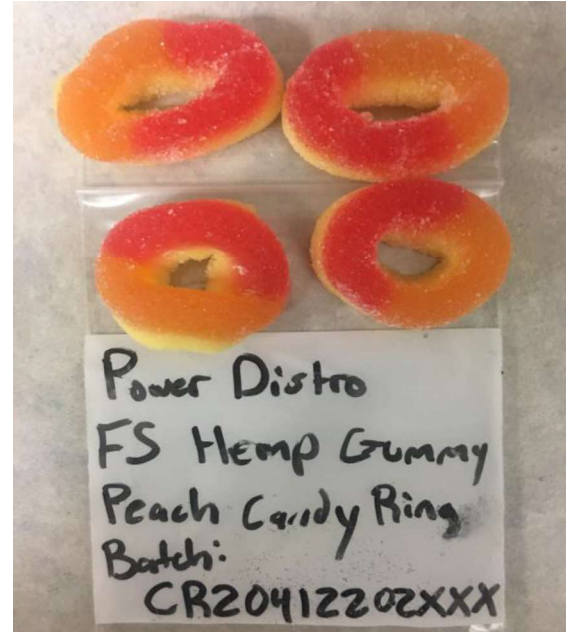 Power Distro
FS Hemp Gummy
Peach Candy Ring
Batch:
CR20412202XXX